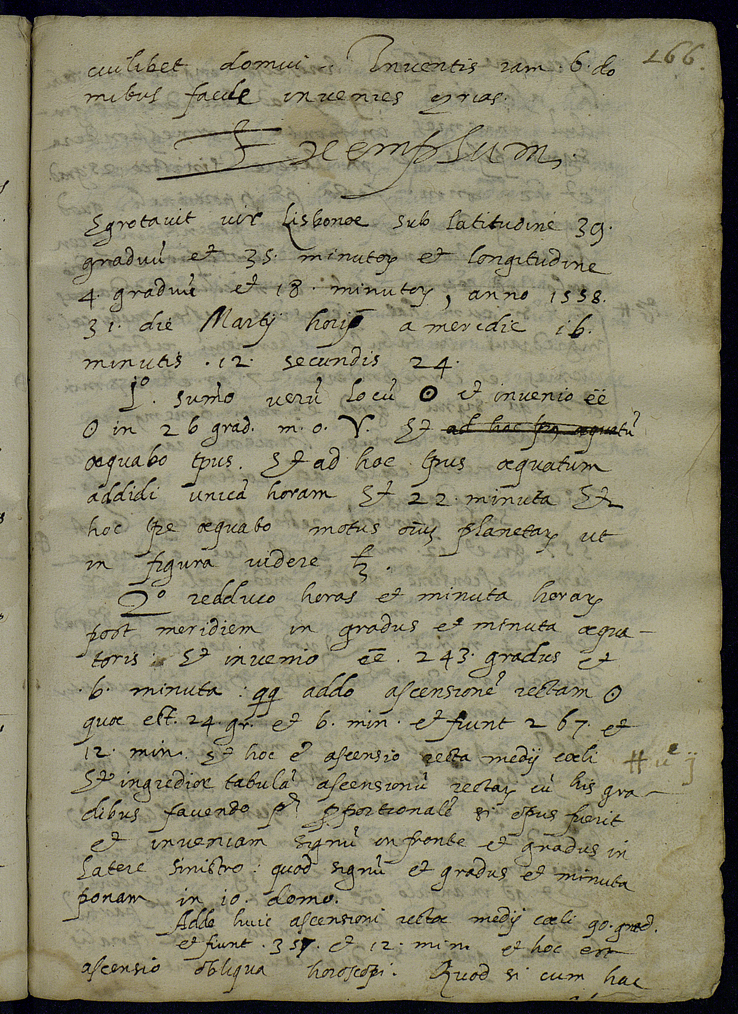 166.
cuilibet domui. Inventis iam 6. do
mibus facile invenies
Exemplum.
Egrotavit vir Lisbonae sub latitudine 39.
graduũ et 35. minutoꝝ et longitudine
4. graduũ et 18. minutoꝝ, anno 1558.
31. die Martij horis a meridie 16.
minutis .12. secundis 24.
1º. sumo verũ locũ ☉ et invenio eẽ
☉ in 26 grad. m. o. ♈. Et ad hoc aequatũ
aequabo tpus. Et ad hoc tpus aequatum
addidi unicã horam Et 22. minuta Et
hoc tpe aequabo motus oĩuʒ planetaꝝ ut
in figura videre
2º redduco horas et minuta horaꝝ
post meridiem in gradus et minuta aequa-
toris. Et invenio eẽ. 243. gradus et
.6. minuta: qq addo ascensionẽ rectam ☉
quae est. 24. gr. et 6. min. et fiunt 267. et
12. min. Et hoc ẽ ascensio recta medij caeli
Et ingredior tabulã ascensionũ rectaꝝ cũ his gra-
dibus pportionalẽ si opus fuerit
et inveniam signũ in fronte et gradus in
latere sinistro: quod signũ et gradus et minuta
ponam in 10. domo.
Adde huic ascensioni rectae medij caeli 90. grad.
et fiunt .357. et 12. min. et hoc est
ascensio obliqua horoscopi. Quod si cum hac